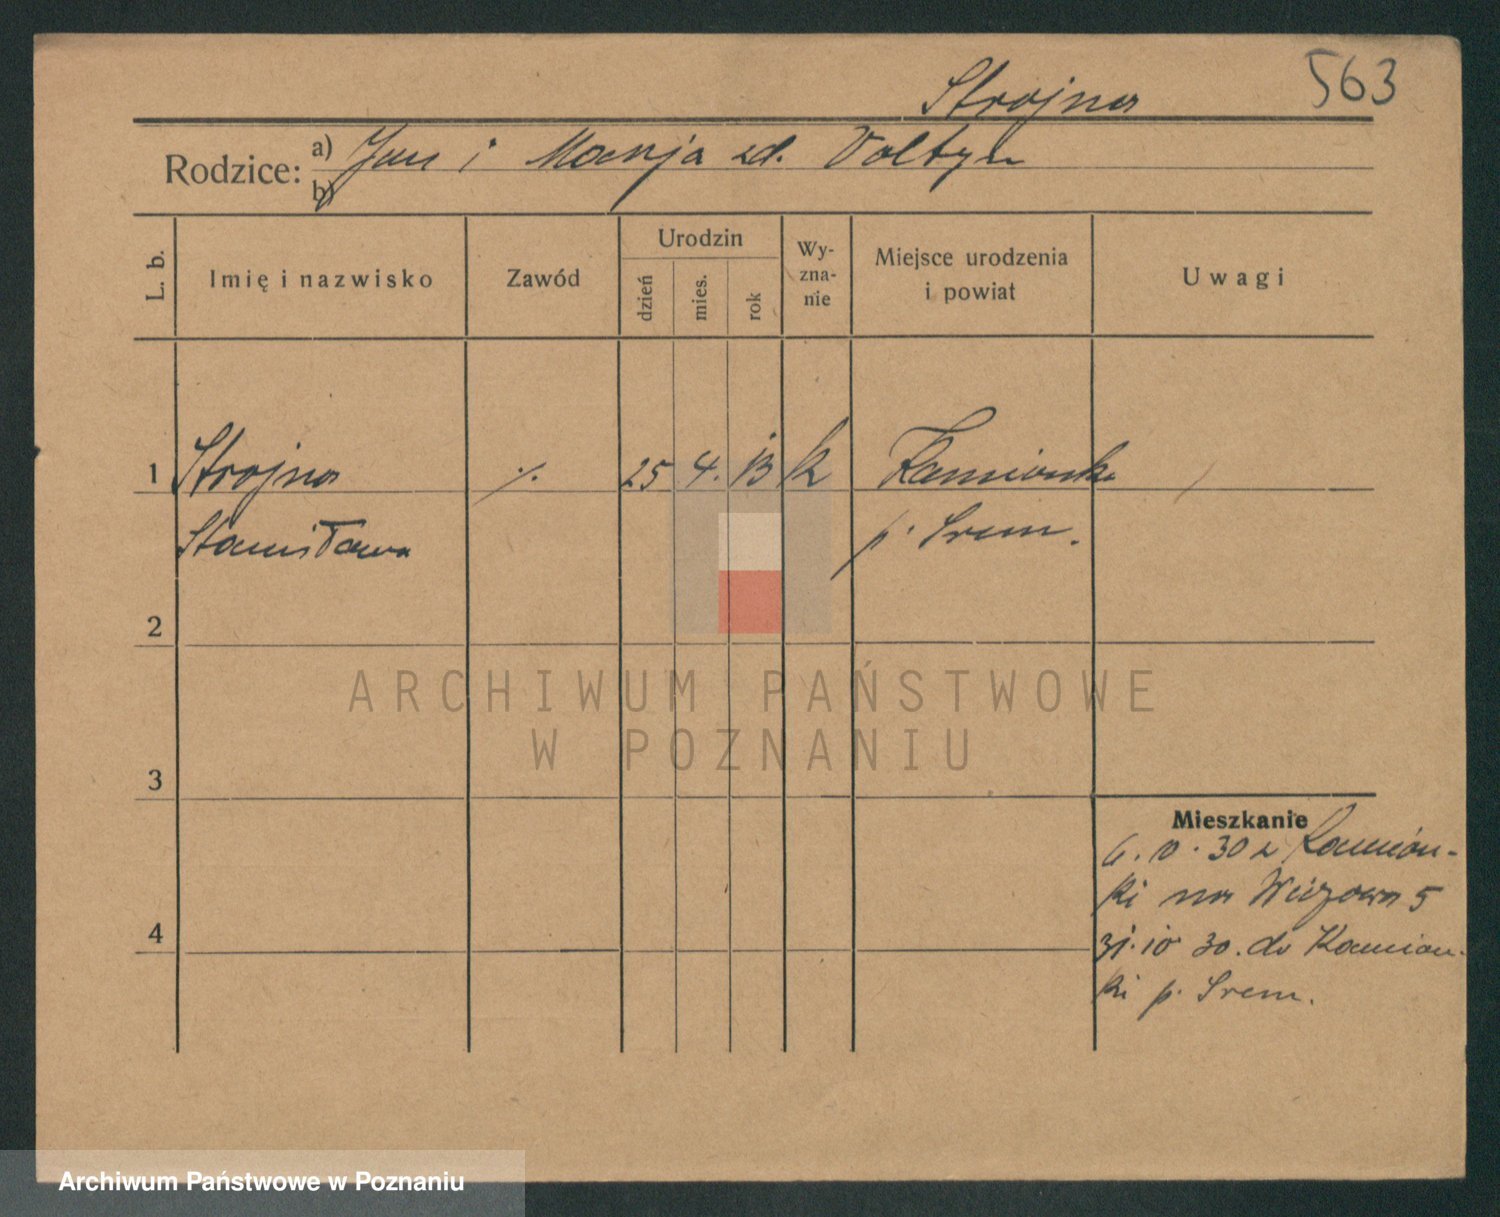 Strojna 563
Rodzice: a) Jan i Marja zd. Voltyn
b)
L. b. Imię i nazwisko Zawód Urodzin dzień mies. rok Wy-zna-nie Miejsce urodzenia i powiat Uwagi
1 Strojna ·/. 25 4. 13 k Kamionka
Stanisława p. Srem.
2
ARCHIWUM PAŃSTWOWE
W POZNANIU
3
Mieszkanie
6. 10. 30 z Kamion-
ki na Wiązowa 5
4
31. 10 30. do Kamion-
ki p. Srem.
Archiwum Państwowe w Poznaniu